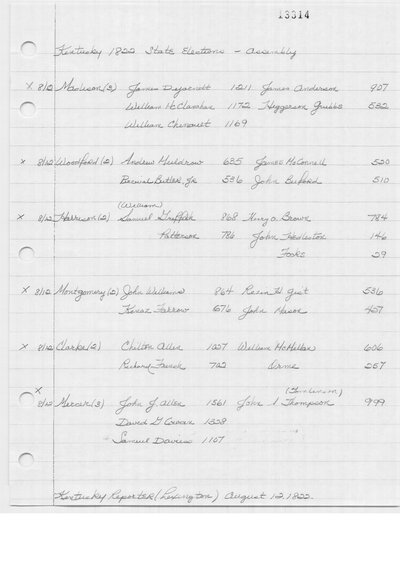 13314
Kentucky 1822 State Elections - Assembly
X 8/12 Madison (3) James Dejarnett 1211 James Anderson 907
William McClanahan 1172 Higgerson Grubbs 582
William Chenault 1169
X 8/12 Woodford (2) Andrew Muldrow 685 James McConnell 520
Percival Butler, Jr 536 John Buford 510
(William)
X 8/12 Harrison (2) Samuel Griffith 868 Henry O. Brown 784
Patterson 786 John Huddleston 146
Fooks 29
X 8/12 Montgomery (2) John Williams 864 Resin H. Gist 536
Kenaz Farrow 676 John Mason 457
X 8/12 Clarke (2) Chilton Allen 1027 William McMillan 606
Richard French 702 Orme 257
X (Tomlinson)
8/12 Mercer (3) John J. Allen 1561 John S Thompson 999
David G Cowan 1328
Samuel Davies 1107
Kentucky Reporter (Lexington) August 12, 1822.